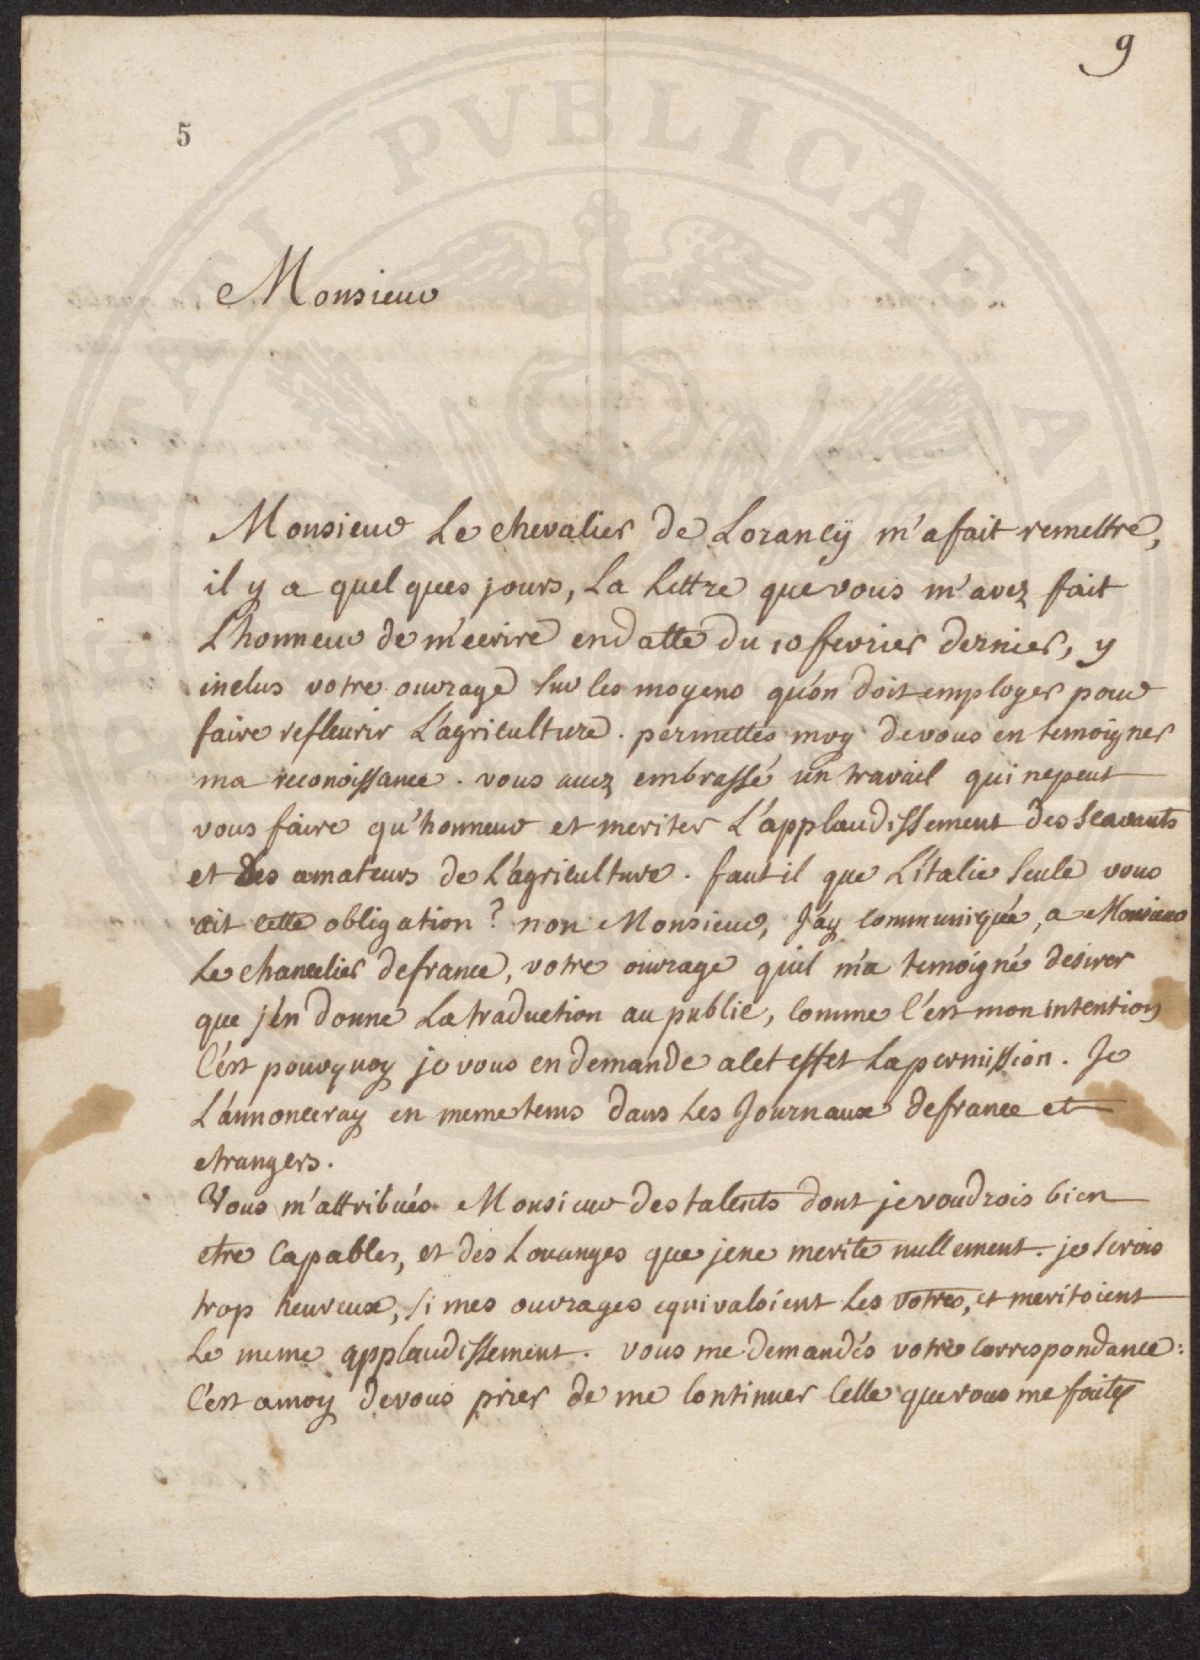 9
5
Monsieur
Monsieur Le chevalier de Lorancÿ m'a fait remettre,
il y a quelques jours, La Lettre que vous m'avez fait
L'honneur de m'ecrire en datte du 10 fevrier dernier, y
inclus votre ouvrage sur les moyens qu'on doit employer pour
faire refleurir L'agriculture. permettés moy de vous en temoigner
ma reconoissance. vous avez embrassé un travail qui ne peut
vous faire qu'honneur et meriter L'applaudissement des scavants
et des amateurs de L'agriculture. faut il que L'italie seule vous
ait cette obligation? non Monsieur, J'ay communiquée, a Monsieur
Le chancelier de france, votre ouvrage qu'il m'a temoigné desirer
que j'en donne La traduction au public, comme c'est mon intention
C'est pourquoy je vous en demande a cet effet La permission. Je
L'annonceray en meme tems dans Les Journaux de france et
etrangers.
Vous m'attribués Monsieur des talents dont je voudrois bien
etre capable, et des Louanges que je ne merite nullement. je serois
trop heureux, si mes ouvrages equivaloient Les votres, et meritoient
Le meme applaudissement. vous me demandés votre correspondance:
C'est a moy de vous prier de me continuer celle que vous me faites